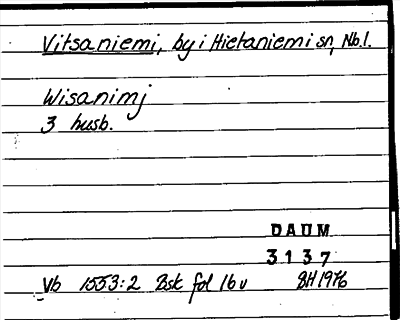 Vitsaniemi, by i Hietaniemi sn, Nb.l.
Wisanimj
3 husb.
DAUM
3137
Vb 1553:2 Bsk fol 16v BH 1976